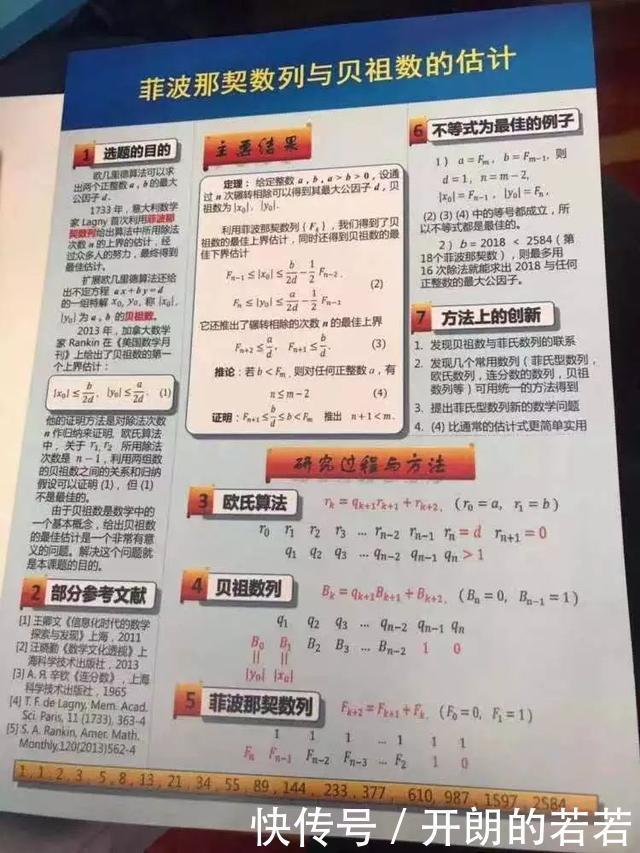 菲波那契数列与贝祖数的估计
1 选题的目的
欧几里德算法可以求
出两个正整数 a, b 的最大
公因子 d.
1733 年，意大利数学
家 Lagny 首次利用菲波那
契数列给出算法中所用除法
次数 n 的上界的估计，经
过众多人的努力，最终得到
最佳估计。
扩展欧几里德算法还给
出不定方程 ax + by = d
的一组特解 x₀, y₀, 称 |x₀|,
|y₀| 为 a, b 的贝祖数。
2013 年，加拿大数学
家 Rankin 在《美国数学月
刊》上给出了贝祖数的第一
个上界估计：
|x₀| ≤ b/2d, |y₀| ≤ a/2d. (1)
他的证明方法是对除法次数
n 作归纳来证明, 欧氏算法
中，关于 r₁, r₂ 所用除法
次数是 n − 1, 利用两组数
的贝祖数之间的关系和归纳
假设可以证明 (1)，但 (1)
不是最佳的。
由于贝祖数是数学中的
一个基本概念，给出贝祖数
的最佳估计是一个非常有意
义的问题。解决这个问题就
是本课题的目的。
2 部分参考文献
[1] 王卿文《信息化时代的数学
探索与发现》上海，2011
[2] 汪晓勤《数学文化透视》上
海科学技术出版社，2013
[3] А. Я. 辛钦《连分数》，上海
科学技术出版社，1965
[4] T. F. de Lagny, Mem. Acad.
Sci. Paris, 11 (1733), 363-4
[5] S. A. Rankin, Amer. Math.
Monthly,120(2013)562-4
主要结果
定理：给定整数 a, b, a > b > 0, 设通
过 n 次辗转相除可以得到其最大公因子 d, 贝
祖数为 |x₀|, |y₀|.
利用菲波那契数列 { Fₖ }，我们得到了贝
祖数的最佳上界估计，同时还得到贝祖数的最
佳下界估计
Fₙ₋₁ ≤ |x₀| ≤ b/2d − 1/2 Fₙ₋₂ ,
(2)
Fₙ ≤ |y₀| ≤ a/2d − 1/2 Fₙ₋₂
它还推出了辗转相除的次数 n 的最佳上界
Fₙ₊₂ ≤ a/d, Fₙ₊₁ ≤ b/d. (3)
推论：若 b < Fₘ , 则对任何正整数 a，有
n ≤ m − 2 (4)
证明：Fₙ₊₁ ≤ b/d ≤ b < Fₘ 推出 n + 1 < m.
6 不等式为最佳的例子
1） a = Fₘ , b = Fₘ₋₁, 则
d = 1, n = m − 2,
|x₀| = Fₙ₋₁ , |y₀| = Fₙ ,
(2) (3) (4) 中的等号都成立，所
以不等式都是最佳的。
2）b = 2018 < 2584 (第
18个菲波那契数)，则最多用
16 次除法就能求出 2018 与任何
正整数的最大公因子。
7 方法上的创新
1. 发现贝祖数与菲氏数列的联系
2. 发现几个常用数列（菲氏型数列，
欧氏数列，连分数的数列，贝祖
数列等）可用统一的方法得到
3. 提出菲氏型数列新的数学问题
4. (4) 比通常的估计式更简单实用
研究过程与方法
3 欧氏算法 rₖ = qₖ₊₁rₖ₊₁ + rₖ₊₂, (r₀ = a, r₁ = b)
r₀ r₁ r₂ r₃ … rₙ₋₂ rₙ₋₁ rₙ = d rₙ₊₁ = 0
q₁ q₂ q₃ … qₙ₋₂ qₙ₋₁ qₙ > 1
4 贝祖数列 Bₖ = qₖ₊₁Bₖ₊₁ + Bₖ₊₂, (Bₙ = 0, Bₙ₋₁ = 1)
q₁ q₂ q₃ … qₙ₋₂ qₙ₋₁ qₙ
B₀ B₁ B₂ B₃ … Bₙ₋₂ 1 0
|| ||
|y₀| |x₀|
5 菲波那契数列 Fₖ₊₂ = Fₖ₊₁ + Fₖ, (F₀ = 0, F₁ = 1)
1 1 1 … 1 1 1
Fₙ Fₙ₋₁ Fₙ₋₂ Fₙ₋₃ … F₂ 1 0
1, 1, 2, 3, 5, 8, 13, 21, 34, 55, 89, 144, 233, 377, 610, 987, 1597, 2584
快传号 / 开朗的若若